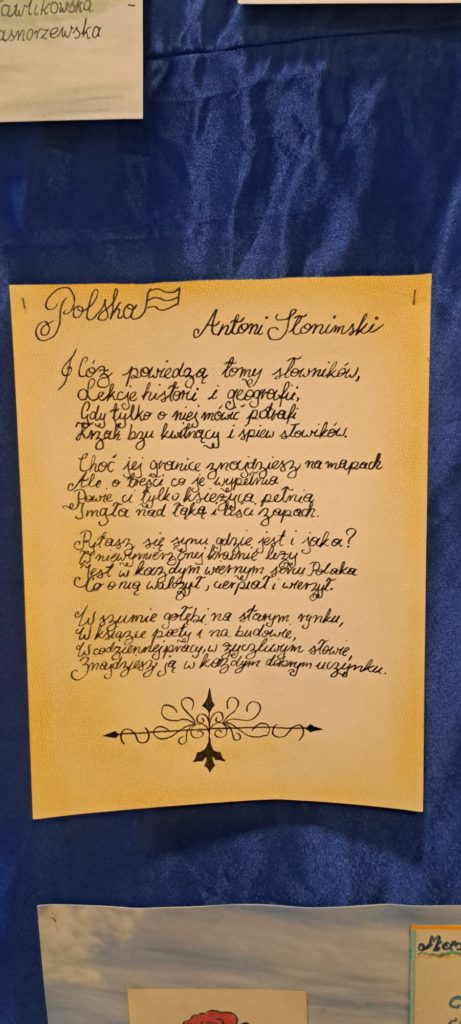 Pawlikowska -
Jasnorzewska
Polska
Antoni Słonimski
I cóż powiedzą tomy słowników,
Lekcje historii i geografii,
Gdy tylko o niej mówić potrafi
Krzak bzu kwitnący i śpiew słowików.
Choć jej granice znajdziesz na mapach
Ale o treści co je wypełnia
Powie ci tylko księżyca pełnia
I mgła nad łąką i liści zapach.
Pytasz się synu gdzie jest i jaka?
W niewymierzonej krainie leży
Jest w każdym wiernym sercu Polaka
Co o nią walczył, cierpiał i wierzył.
W szumie gołębi na starym rynku,
W książce poety i na budowie,
W codziennej pracy, w życzliwym słowie,
Znajdziesz ją w każdym dobrym uczynku.